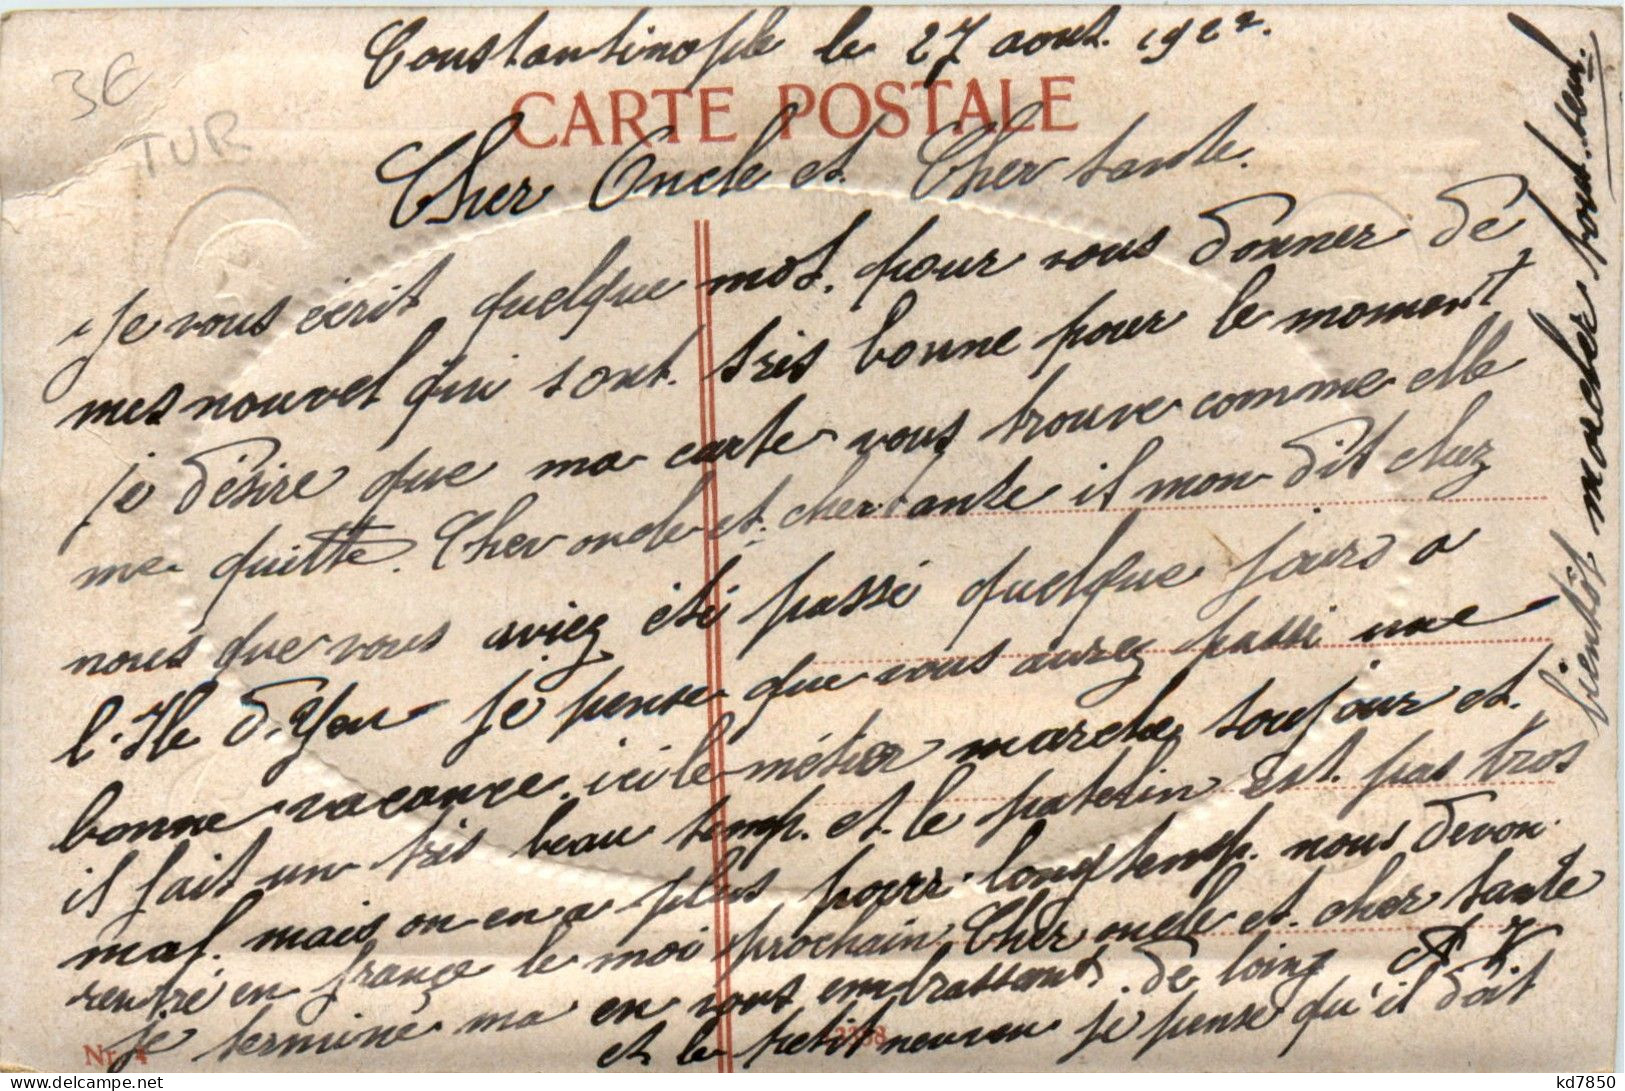 3€
TUR
Constantinople le 27 aout. 1922.
CARTE POSTALE
Cher Oncle et Cher tante.
Je vous écrit quelque mot. pour vous donner de
mes nouvel qui sont. très bonne pour le moment
je désire que ma carte vous trouve comme elle
me quitte. Cher oncle et. cher tante il mon dit chez
nous que vous aviez été passé quelque jours a
l'Ile d'Yeu je pense que vous aurez passé une
bonne vacance. ici le métier marche toujour et.
il fait un très beau temp. et. le patelin est. pas tros
mal. mais on en a plus pour longtemp. nous devon
rentré en françe le moi prochain. Cher oncle et. cher tante
je termine ma en vous embrassent de loing
et le petit neuveu je pense qu'il doit
bientôt marcher tout. seul.
Nr. 4